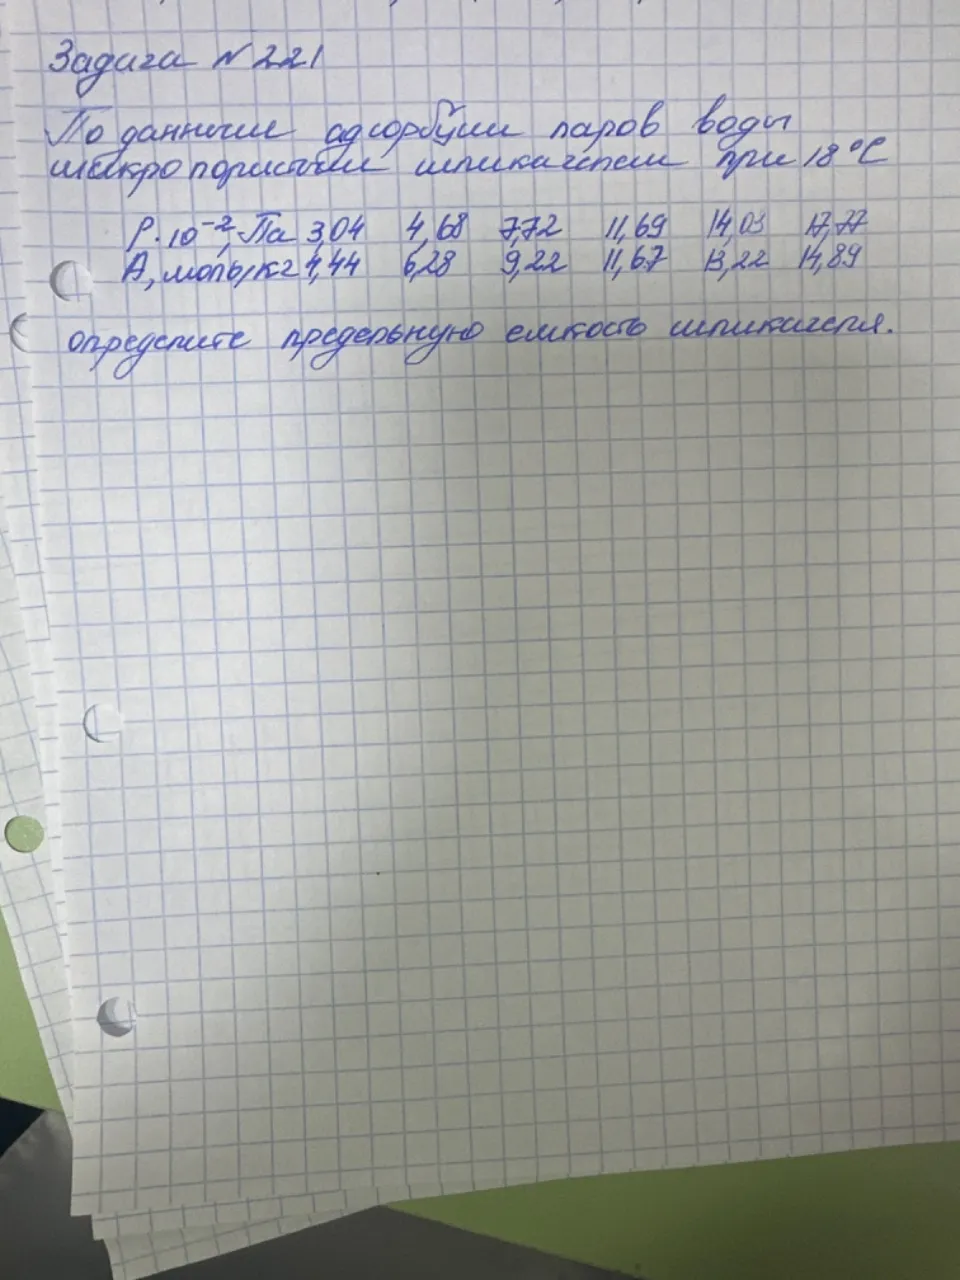 Задача №221
По данным адсорбции паров воды
микропористым силикагелем при 18°С
Р·10⁻², Па 3,04 4,68 7,72 11,69 14,03 17,77
А, моль/кг 4,44 6,28 9,22 11,67 13,22 14,89
определите предельную емкость силикагеля.